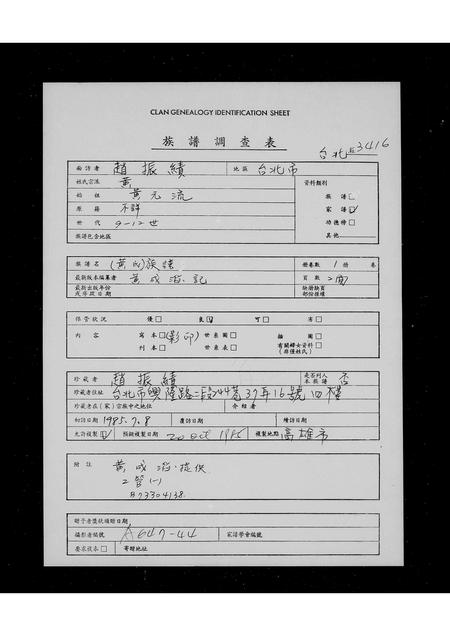 CLAN GENEALOGY IDENTIFICATION SHEET
族譜調查表
台北 3416
面訪者 趙振績 地區 台北市
姓氏宗派 黃 資料類別
始祖 黃元流 族譜□
原籍 不詳 家譜☑
世代 9-12世 功德榜□
族譜包含地區 其他
族譜名 (黃氏)族譜 冊卷數 1 冊 卷
最新版本編纂者 黃成滔.記 頁數 2面
最新出版年份 缺冊缺頁
或序跋日期 部份接樣
保管狀況 優□ 良☑ 可□ 劣□
內容 寫本☑(影印) 世系圖□ 插圖□
刊本□ 世系表□ 有關婦女資料□
(非僅姓氏)
珍藏者 趙振績 是否列入本族譜 否
珍藏者住址 台北市興隆路二段44巷37弄16號四樓
珍藏者在(家)宗族中之地位 介紹者
初訪日期 1985.7.8 覆訪日期 續訪日期
允許複製☑ 預期複製日期 20 Oct 1985 複製地點 高雄市
附註 黃成滔.提供
2管(一)
#73304138
贈予者獎狀頒贈日期
攝影者編號 A647-44 家譜學會編號
要求放本□ 寄贈地址